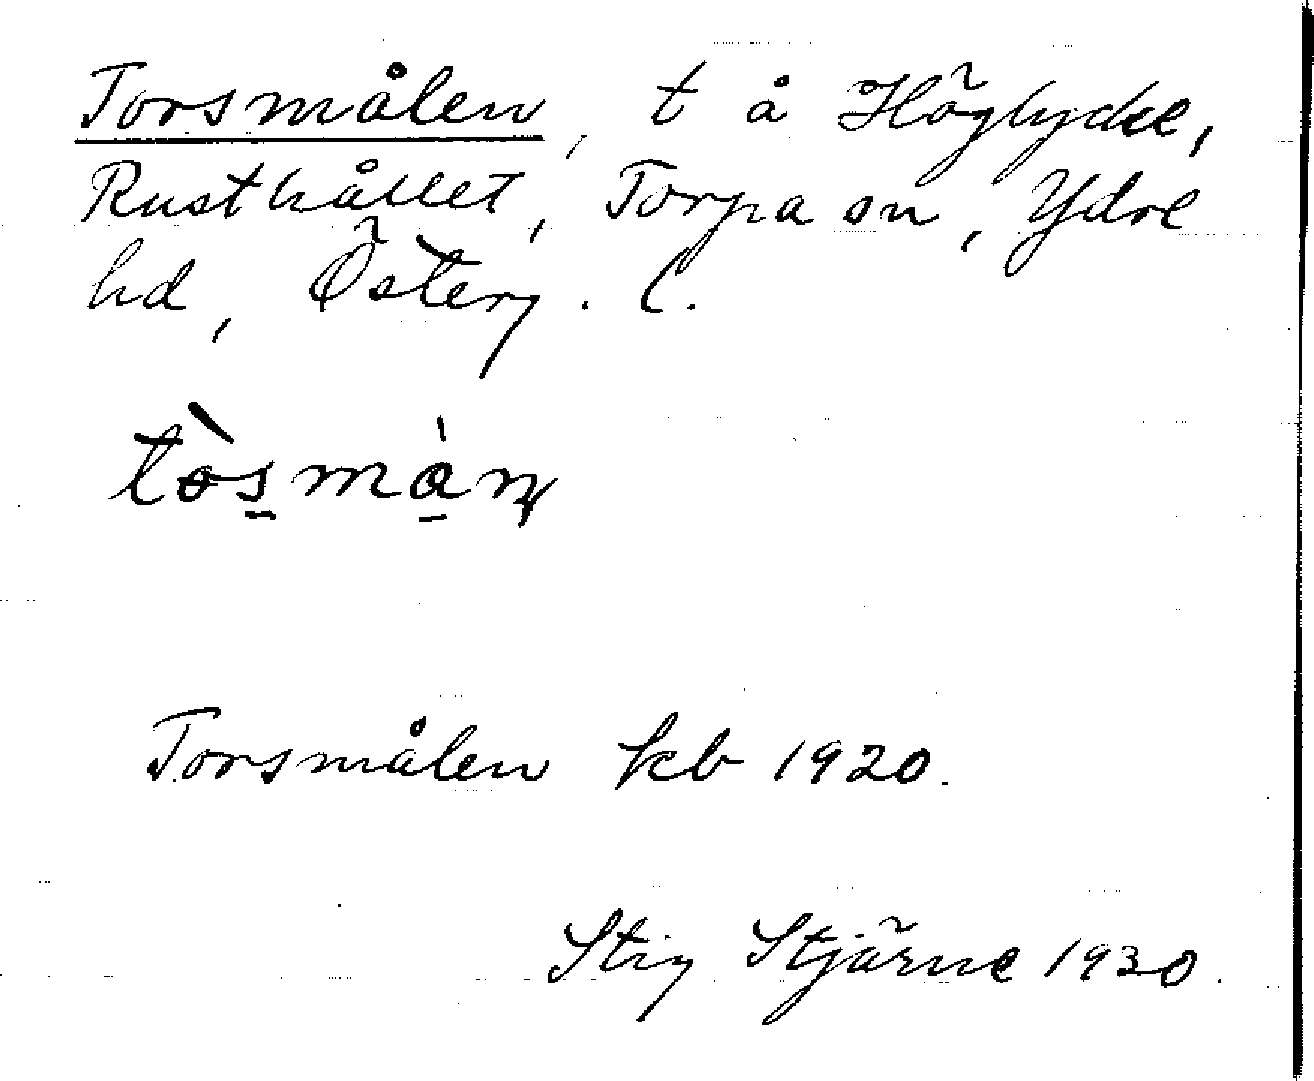 Torsmålen, t å Höglycke,
Rusthållet, Torpa sn, Ydre
hd, Österg. L.
tòs̱ma̱̍ɳ
Torsmålen kb 1920.
Stig Stjärne 1930.